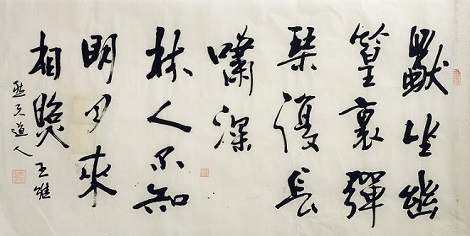 獨坐幽
篁裏彈
琴復長
嘯深
林人不知
明月來
相照 王維
道人